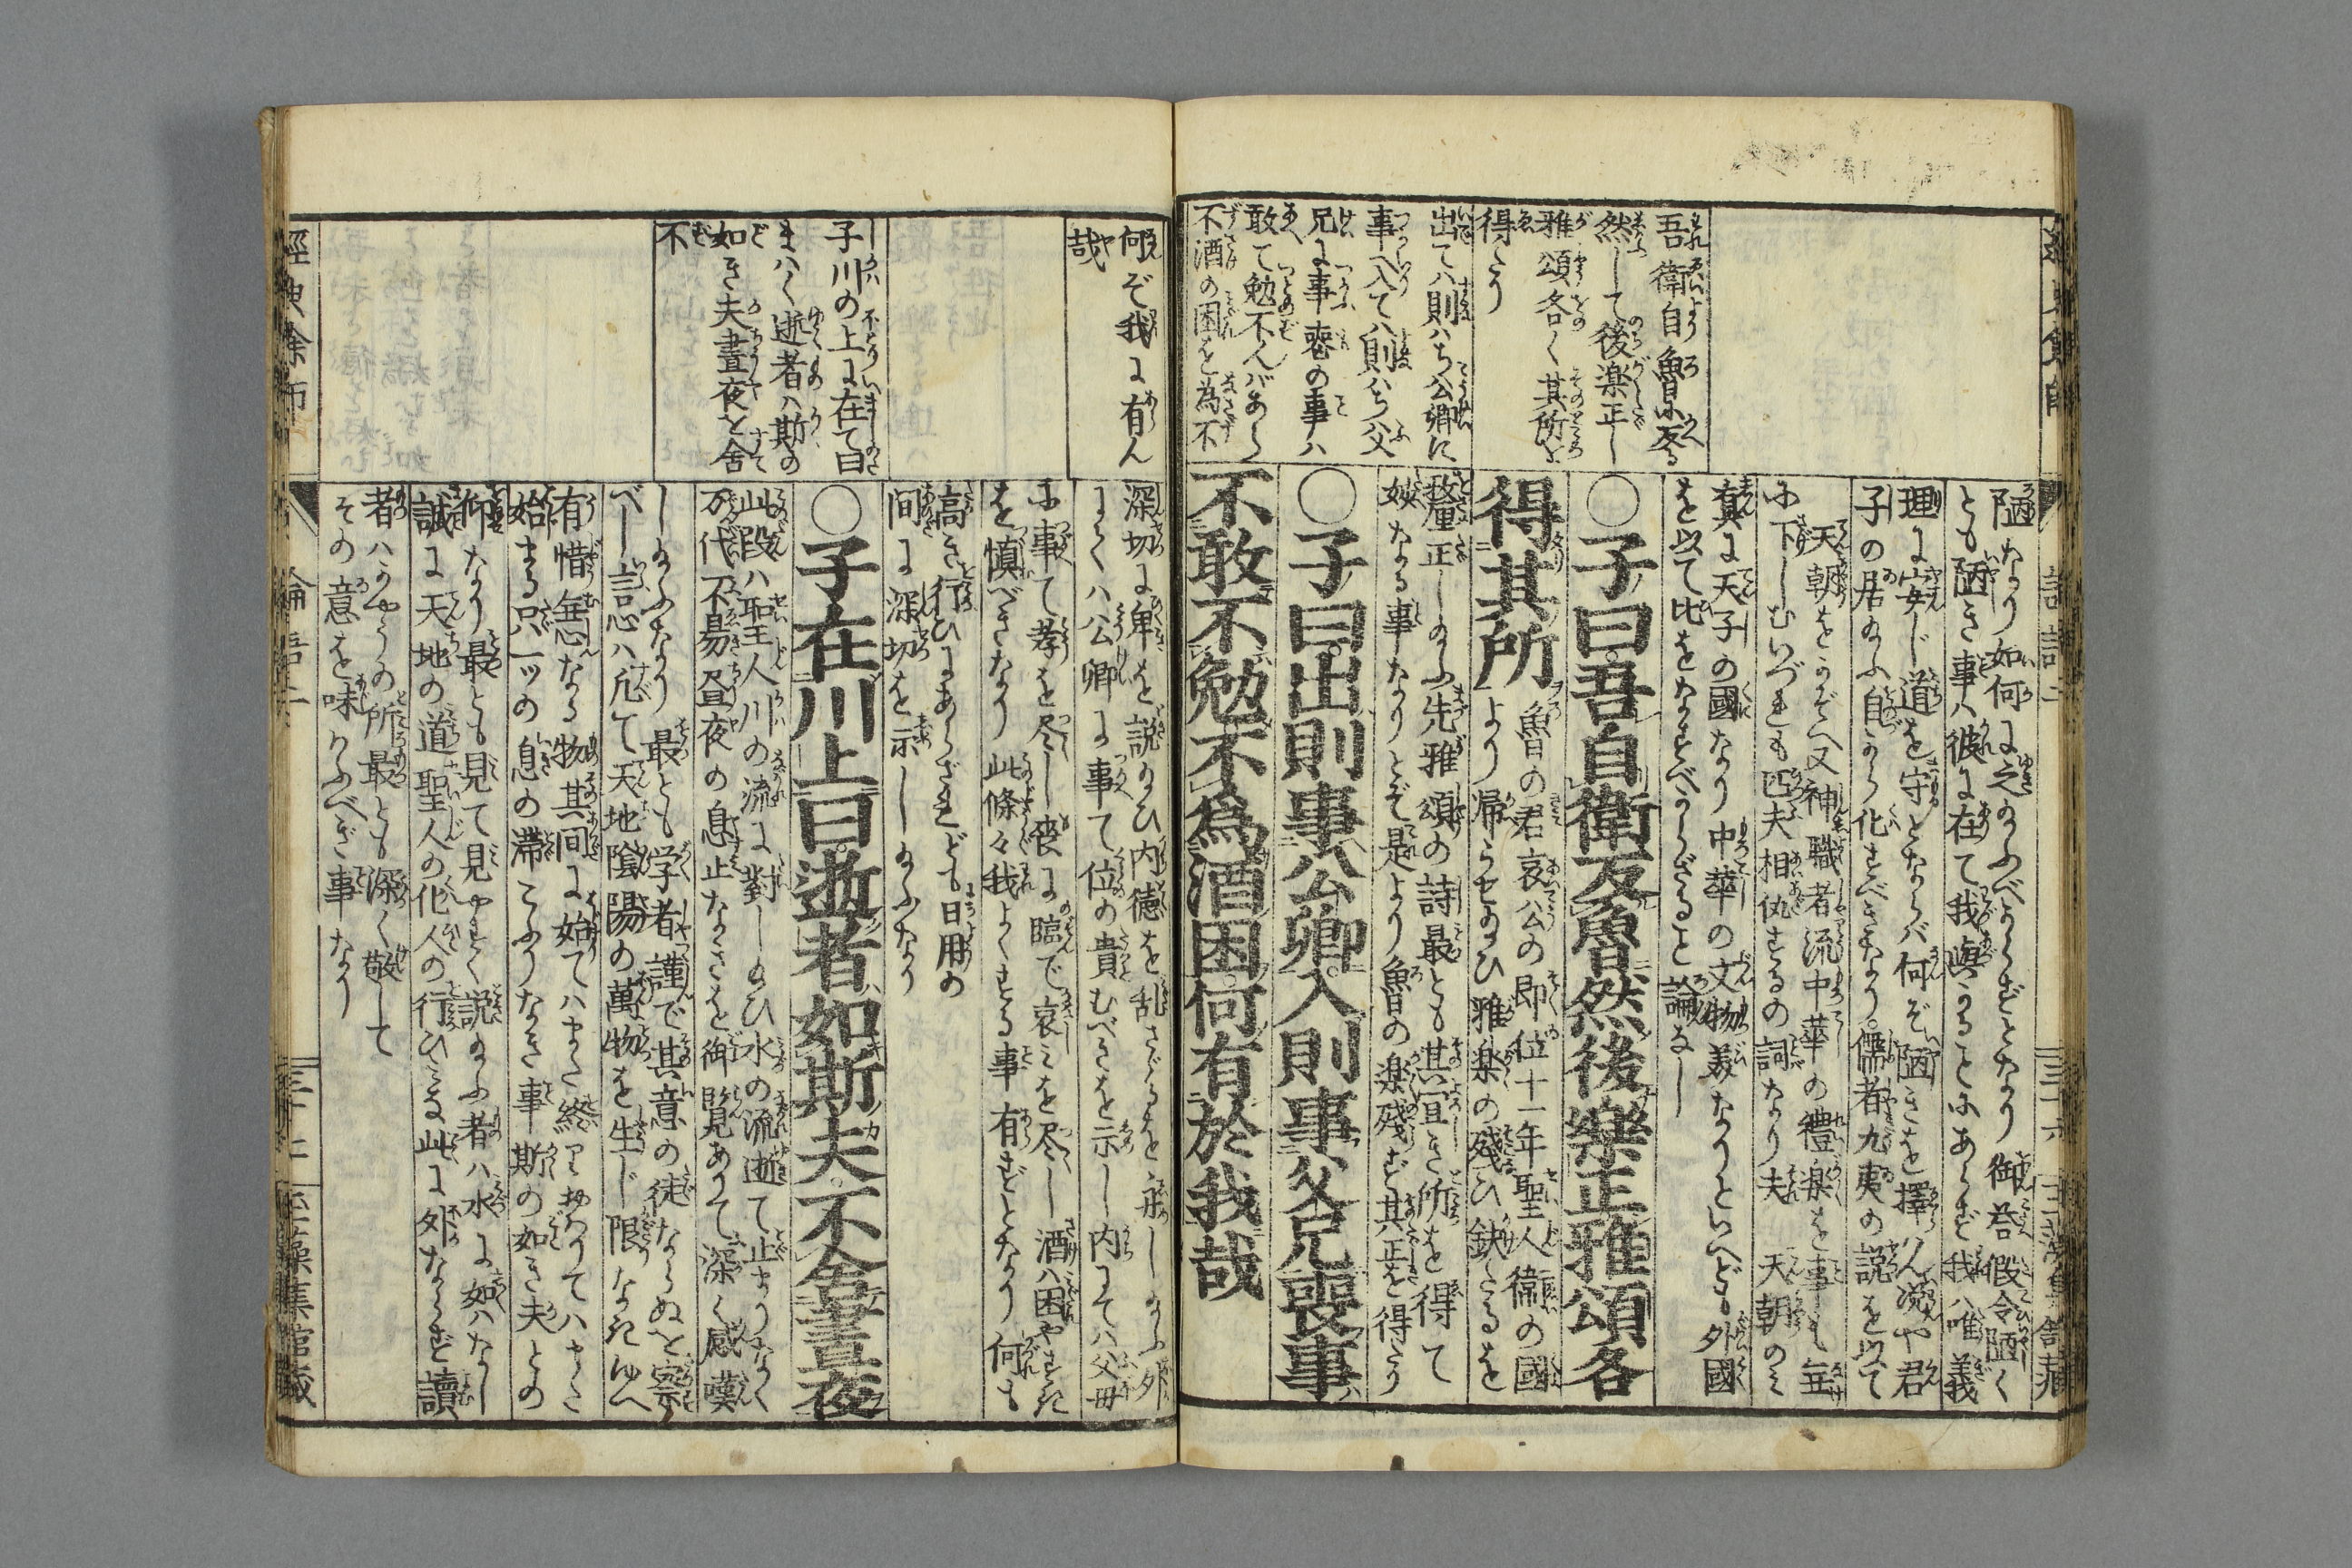 吾衛自魯に反る
然して後楽正し
雅頌各〱其所を
得たり
出てハ則ハち公卿に
事へ入てハ則ハち父
兄に事喪の事ハ
敢て勉不んバあら
不酒の困を為不
陋なり如何に之のふべからずとなり御答假令陋く
とも陋き事ハ彼に在て我與かることにあらず我ハ唯義
理に安じ道を守とならバ何ぞ陋きを擇ん况や君
子の居のふ自から化すべきなり儒者九夷の説を以て
天朝をかぞへ又神職者流中華の禮楽を事も無
に下しむいづれも匹夫相仇するの詞なり夫天朝のミ
真に天子の國なり中華の文物美なりといへども外國
を以て比をなすべからざること論なし
〇子曰吾自衛反魯然後樂正雅頌各
得其所
魯の君哀公の即位十一年聖人衛の國
より帰らせのひ雅楽の残ひ鈌たるを
釐正しのふ先雅頌の詩最とも其宜き所を得て
なる事なりとぞ是より魯の楽残ず其正を得たり
〇子曰出則事公卿入則事父兄喪事
不敢不勉不為酒困何有於我哉
何ぞ我に有ん
哉
子川の上に在て曰
まハく逝者ハ斯の
如き夫晝夜を舎
不
深切に卑を説のひ内徳を乱さゞるを示しのふ外
にてハ公卿に事て位の貴むべきを示し内にてハ父母
に事て孝を尽し喪に臨で哀ミを尽し酒ハ困やすき
を慎べきなり此條々我よくする事有ずとなり何も
高き行ひにあらざれども日用の
间に深切を示しのふなり
〇子在川上曰逝者如斯夫不舎晝夜
此段ハ聖人川の流に對しのひ水の流逝て止まりなく
万代不易昼夜の息止なきを御覧ありて深く感嘆
しのふなり最とも学者謹で其意の徒ならぬを察
べし言心ハ凡て天地陰陽の萬物を生じ限なきゆへ
有情無情なる物其间に始てハまた終りおわりてハまた
始まる只一ッの息の滞こふりなき事斯の如き夫との
仰なり最とも見て見やすく説のふ者ハ水に如ハなし
誠に天地の道聖人の化人の行ひミな此に外ならず讀
者ハかやうの所最とも深く敬して
その意を味ふべき事なり
經典餘師
論語二